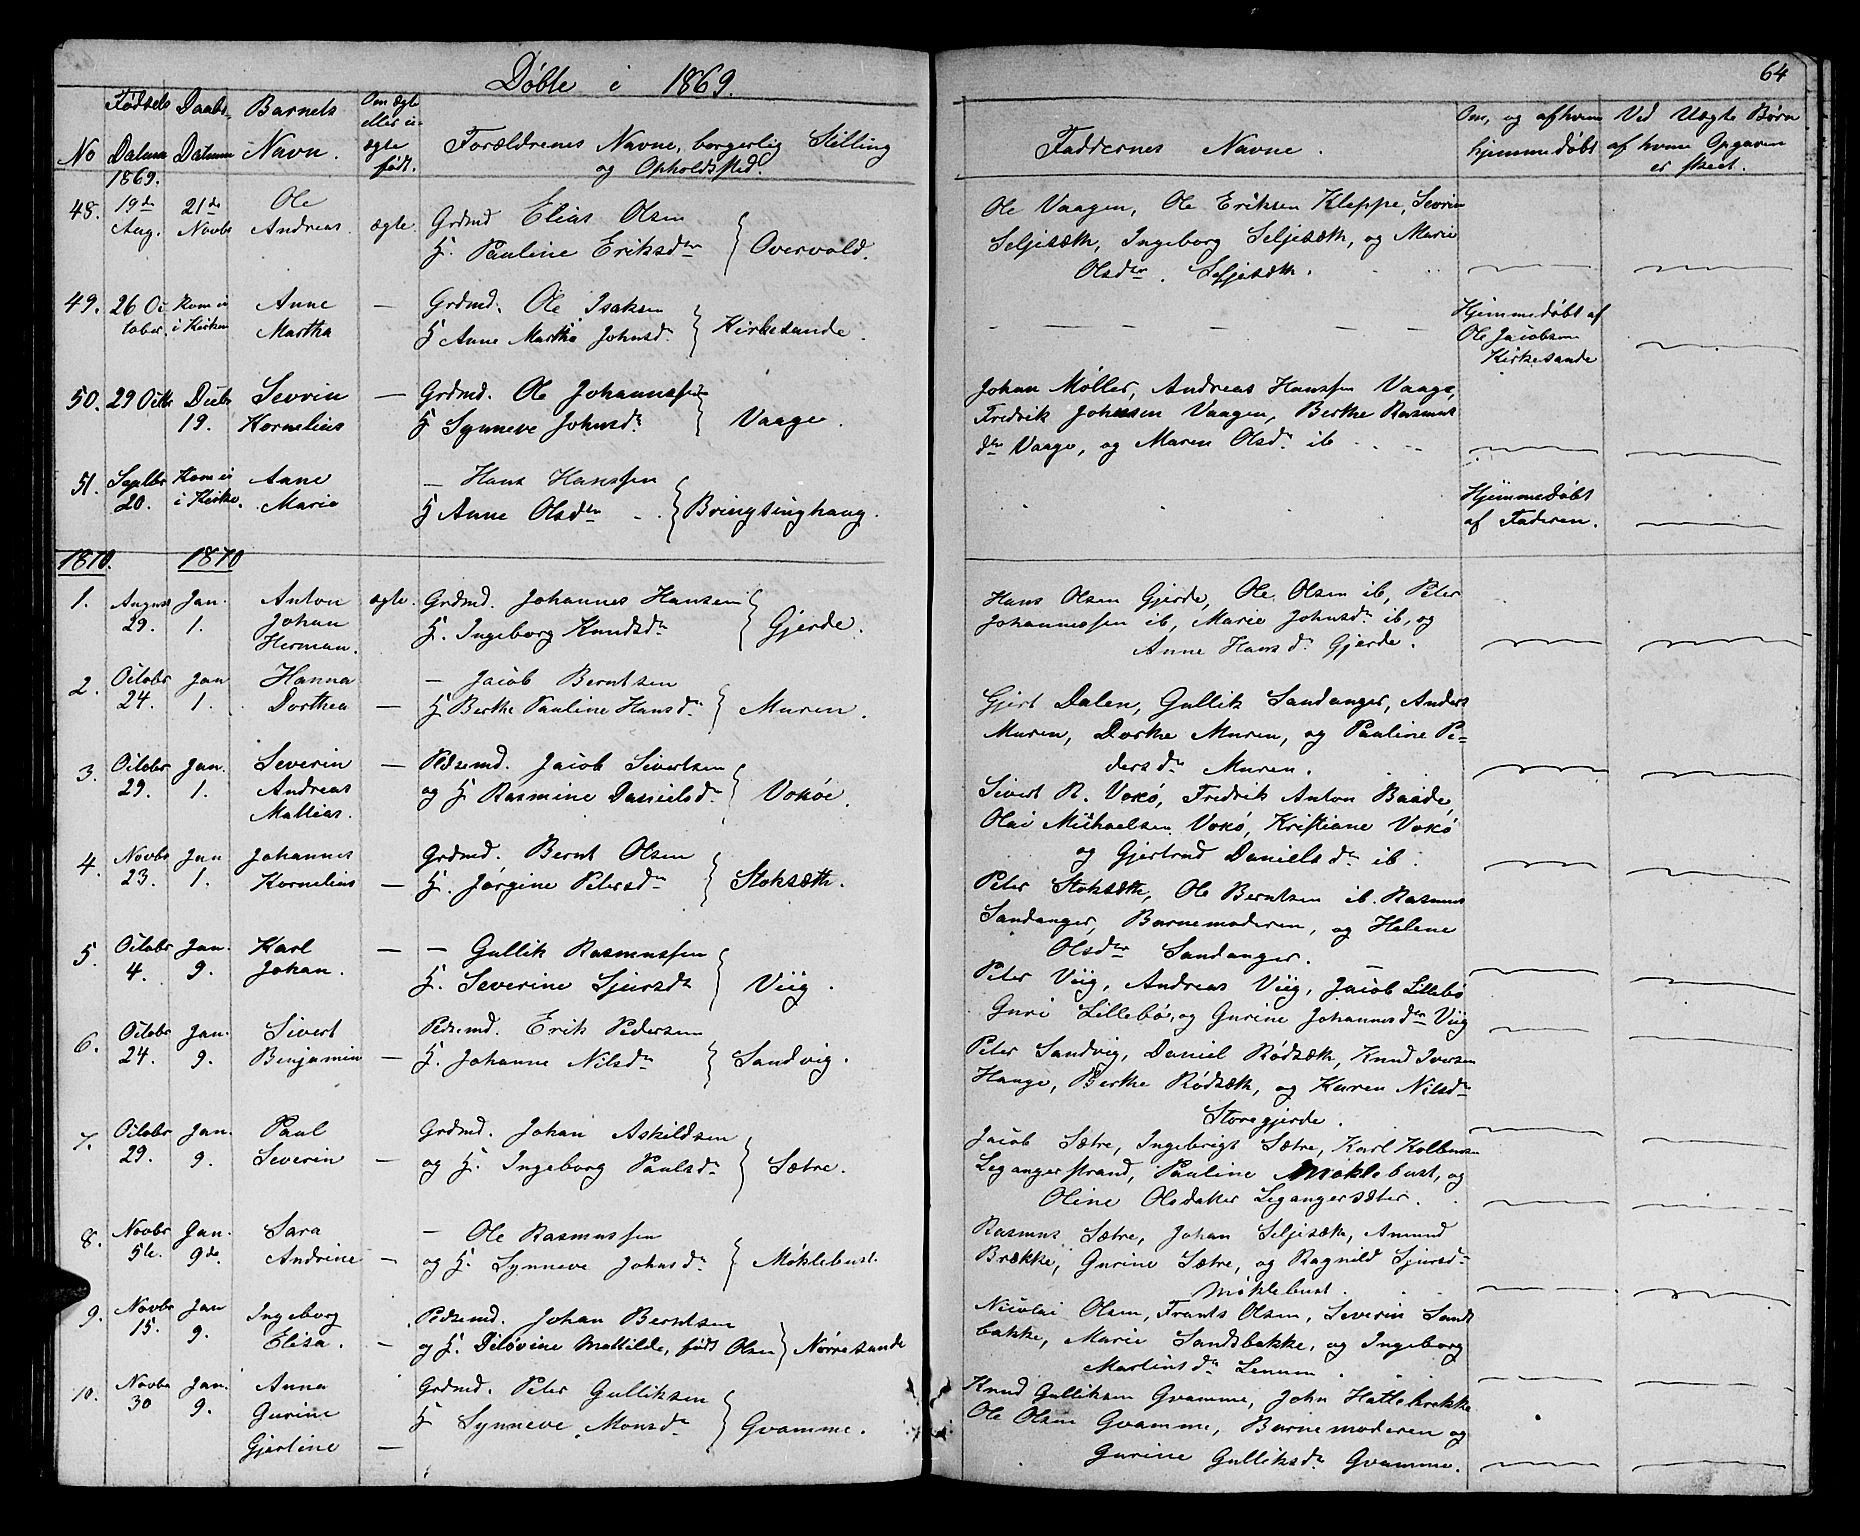 Døbte i 1869.
64
No
Fødsels Datum
Daabs Datum
Barnets Navn.
Om ægte eller uægte født.
Forældrenes Navne, borgerlig Stilling
og Opholdssted.
Faddernes Navne.
Om, og af hvem
hjemmedøbt
Ved Uægte Børn
af hvem Opgaven
er skeet.
1869.
48. 19de Aug. 21de Novbr Ole Andreas. ægte. Grdmd Elias Olsen
H. Pauline Eriksdtr } Overvold.
Ole Vaagen, Ole Eriksen Kleppe, Sevrin
Seljesæth, Ingeborg Seljesæth, og Marie
Olsdtr. Seljesæth.
49. 26 October. Kom ei i Kirken Anne Martha — Grdmd. Ole Isaksen
H Anne Martha Johnsdr } Kirkesande.
Hjemmedøbt af
Ole Jacobsen
Kirkesande
50. 29 Octbr Decbr 19. Sevrin Kornelius — Grdmd. Ole Johannessen
H Synneve Johnsdr } Vaage.
Johan Møller, Andreas Hanssen Vaage,
Fredrik Johnsen Vaagen, Berthe Rasmus
dtr Vaage, og Maren Olsdr ib
51. Septbr 20. Kom ei i Kirke. Anne Marie — Hans Hanssen
H Anne Olsdtr } Bringsinghaug.
Hjemmedøbt
af Faderen.
1870. 1870
1. August 29. Jan. 1. Anton Johan Herman. ægte. Grdmd. Johannes Hansen
H. Ingeborg Knudsdr } Gjerde.
Hans Olsen Gjerde, Ole Olsen ib, Peter
Johannessen ib, Marie Johnsdr ib, og
Anne Hansdr Gjerde.
2. Octobr 24. Jan 1. Hanna Dorthea — — Jacob Berntsen
H Berthe Pauline Hansdr } Muren.
Gjert Dalen, Gullik Sandanger, Anders
Muren, Dorthe Muren, og Pauline Pe-
dersdr Muren.
3. Octobr 29. Jan. 1. Severin Andreas Mathias. — Pdsemd. Jacob Sivertsen
og H Rasmine Danielsdr } Voksøe.
Sivert R. Voksø, Fredrik Anton Baade,
Olai Michaelsen Voksø, Kristiane Voksø
og Gjertrud Danielsdr ib.
4. Novbr 23. Jan 1. Johannes Kornelius — Grdmd. Bernt Olsen
H. Jørgine Petersdr } Stoksæth.
Peter Stoksæth, Ole Berntsen ib. Rasmus
Sandanger, Barnemoderen, og Helene
Olsdtr Sandanger.
5. Octobr 4. Jan. 9. Karl Johan. — — Gullik Rasmussen
H. Severine Sjursdr } Viig.
Peter Viig, Andreas Viig, Jacob Lillebø
Guri Lillebø, og Gurine Johannesdtr Viig
6. Octobr 24. Jan. 9. Sivert Benjamin — Pdsemd. Erik Pedersen
H. Johanne Nilsdr } Sandvig.
Peter Sandvig, Daniel Rødsæth, Knud Iversen
Hauge, Berthe Rødsæth, og Karen Nilsdr
Storegjerde.
7. Octobr 29. Jan. 9. Paul Severin — Grdmd. Johan Askildsen
og H. Ingeborg Paulsdr } Sætre.
Jacob Sætre, Ingebrigt Sætre, Karl Kolbensen
Legangerstrand, Pauline Møklebust, og
Oline Olsdatter Legangersæter.
8. Novbr 5te. Jan. 9de. Sara Andrine — — Ole Rasmussen
og H. Synneve Johnsdr } Møklebust.
Rasmus Sætre, Johan Seljesæth, Amund
Brække, Gurine Sætre, og Ragnild Sjursdr
Møklebust.
9. Novbr 15. Jan 9. Ingeborg Elisa. — Pdsemd. Johan Berntsen
og H. Deløvine Mathilde, født Olsen } Nørresande
Nicolai Olsen, Frants Olsen, Severin Sands
bakke, Marie Sandsbakke, og Ingeborg
Martinsdr
10. Novbr 30 Jan. 9. Anna Gurine Gjertine — Grdmd. Peter Gulliksen
H Synneve Monsdr } Gvamme.
Knud Gulliksen Gvamme, John Hattlebrekke
Ole Olsen Gvamme, Barnemoderen og
Gurine Gulliksdr Gvamme.